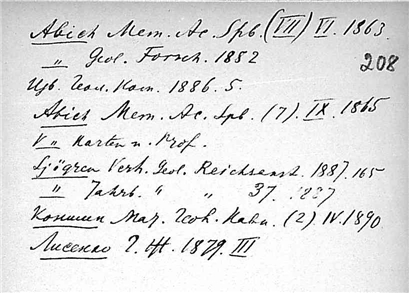 Abich Mem. Ac. Spb. (VII) VI. 1863.
„ Geol. Forsch. 1882
208
Изв. Геол. Ком. 1886. 5.
Abich Mem. Ac. Spb. (7). IX. 1865
V „ Karten u. Prof.
Sjögren Verh. Geol. Reichsanst. 1887. 165
„ Jahrb. „ „ 37. 1887
Коншин Мат. Геол. Кавк. (2) IV. 1890
Лисенко Г. Ж. 1879. III